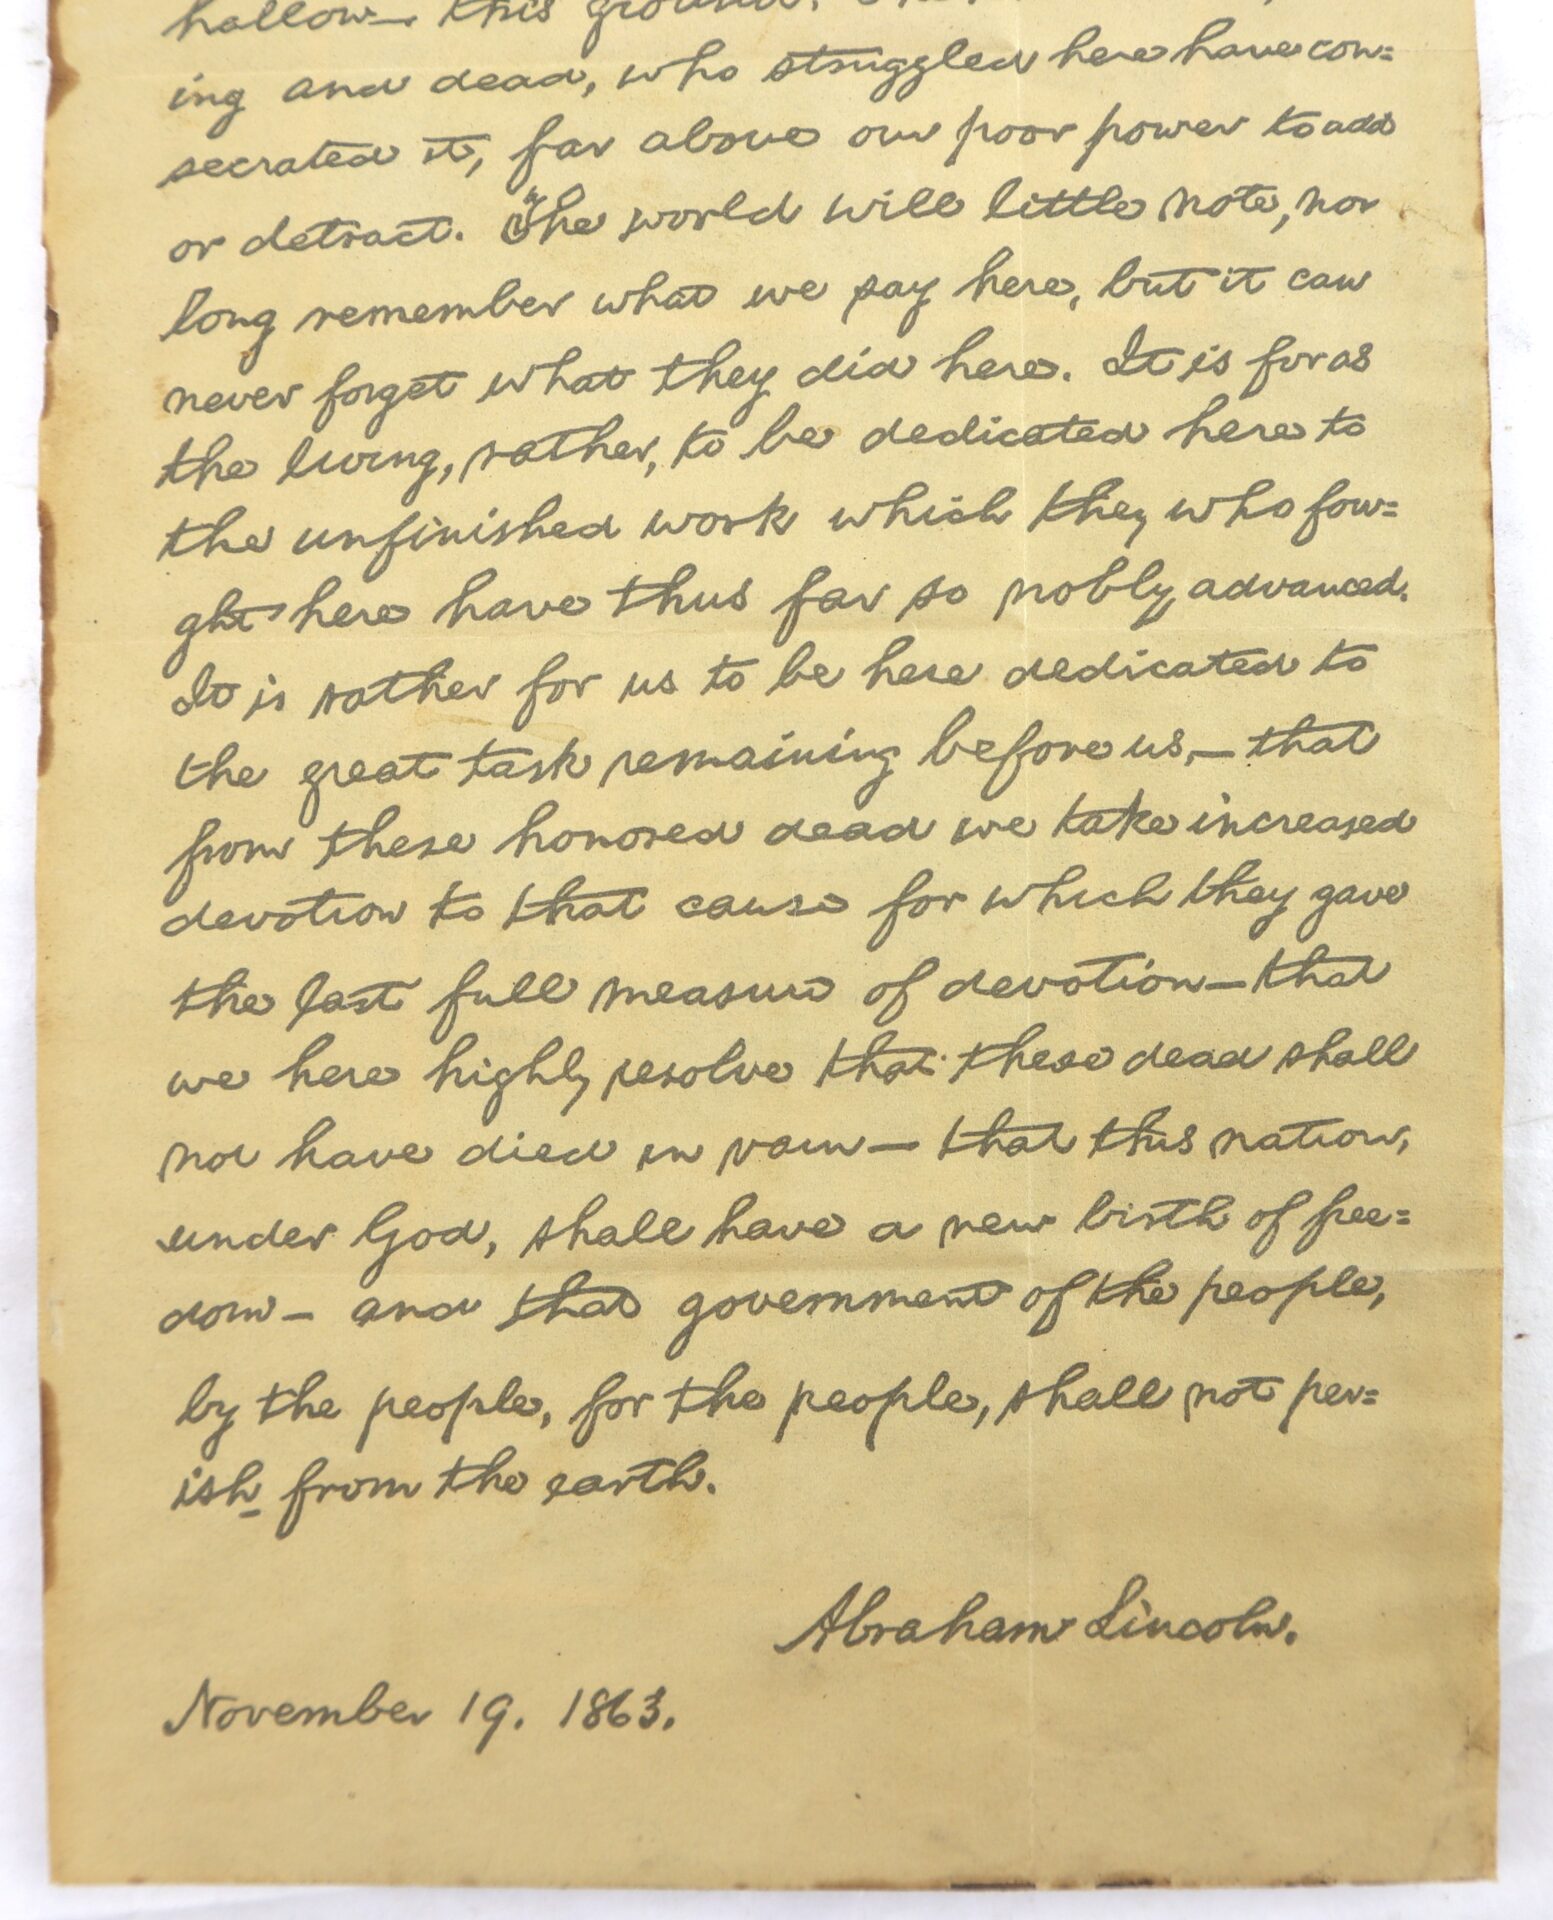 hallow— this ground. The
ing and dead, who struggled here have con=
secrated it, far above our poor power to add
or detract. The world will little note, nor
long remember what we say here, but it can
never forget what they did here. It is for us
the living, rather, to be dedicated here to
the unfinished work which they who fou=
ght here have thus far so nobly advanced.
It is rather for us to be here dedicated to
the great task remaining before us,— that
from these honored dead we take increased
devotion to that cause for which they gave
the last full measure of devotion— that
we here highly resolve that these dead shall
not have died in vain— that this nation,
under God, shall have a new birth of free=
dom— and that government of the people,
by the people, for the people, shall not per=
ish from the earth.
Abraham Lincoln.
November 19. 1863.